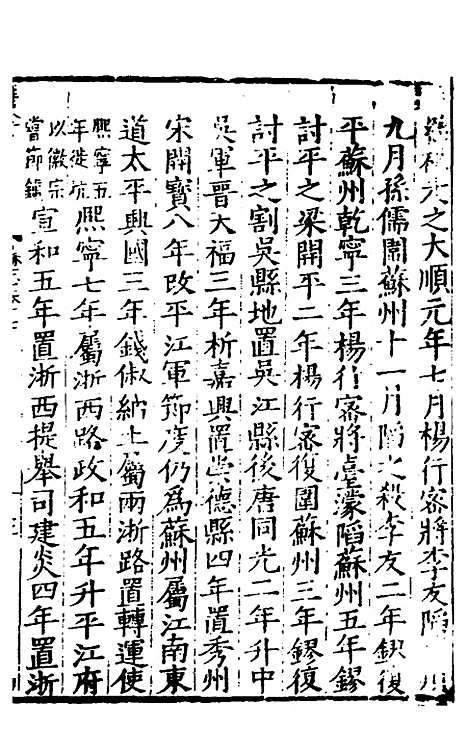 之大順元年七月楊行密將李友陷 州
九月孫儒圍蘇州十一月陷之殺李友二年鏐復
平蘇州乾寧三年楊行密將臺濛陷蘇州五年鏐
討平之梁開平二年楊行密復圍蘇州三年鏐復
討平之割吳縣地置吳江縣後唐同光二年升中
吳軍晉天福三年析嘉興置崇德縣四年置秀州
宋開寶八年改平江軍節度仍為蘇州屬江南東
道太平興國三年錢俶納土屬兩浙路置轉運使
熙寧五
年徙杭
熙寧七年屬浙西路政和五年升平江府
以徽宗
嘗節鎮
宣和五年置浙西提舉司建炎四年置浙